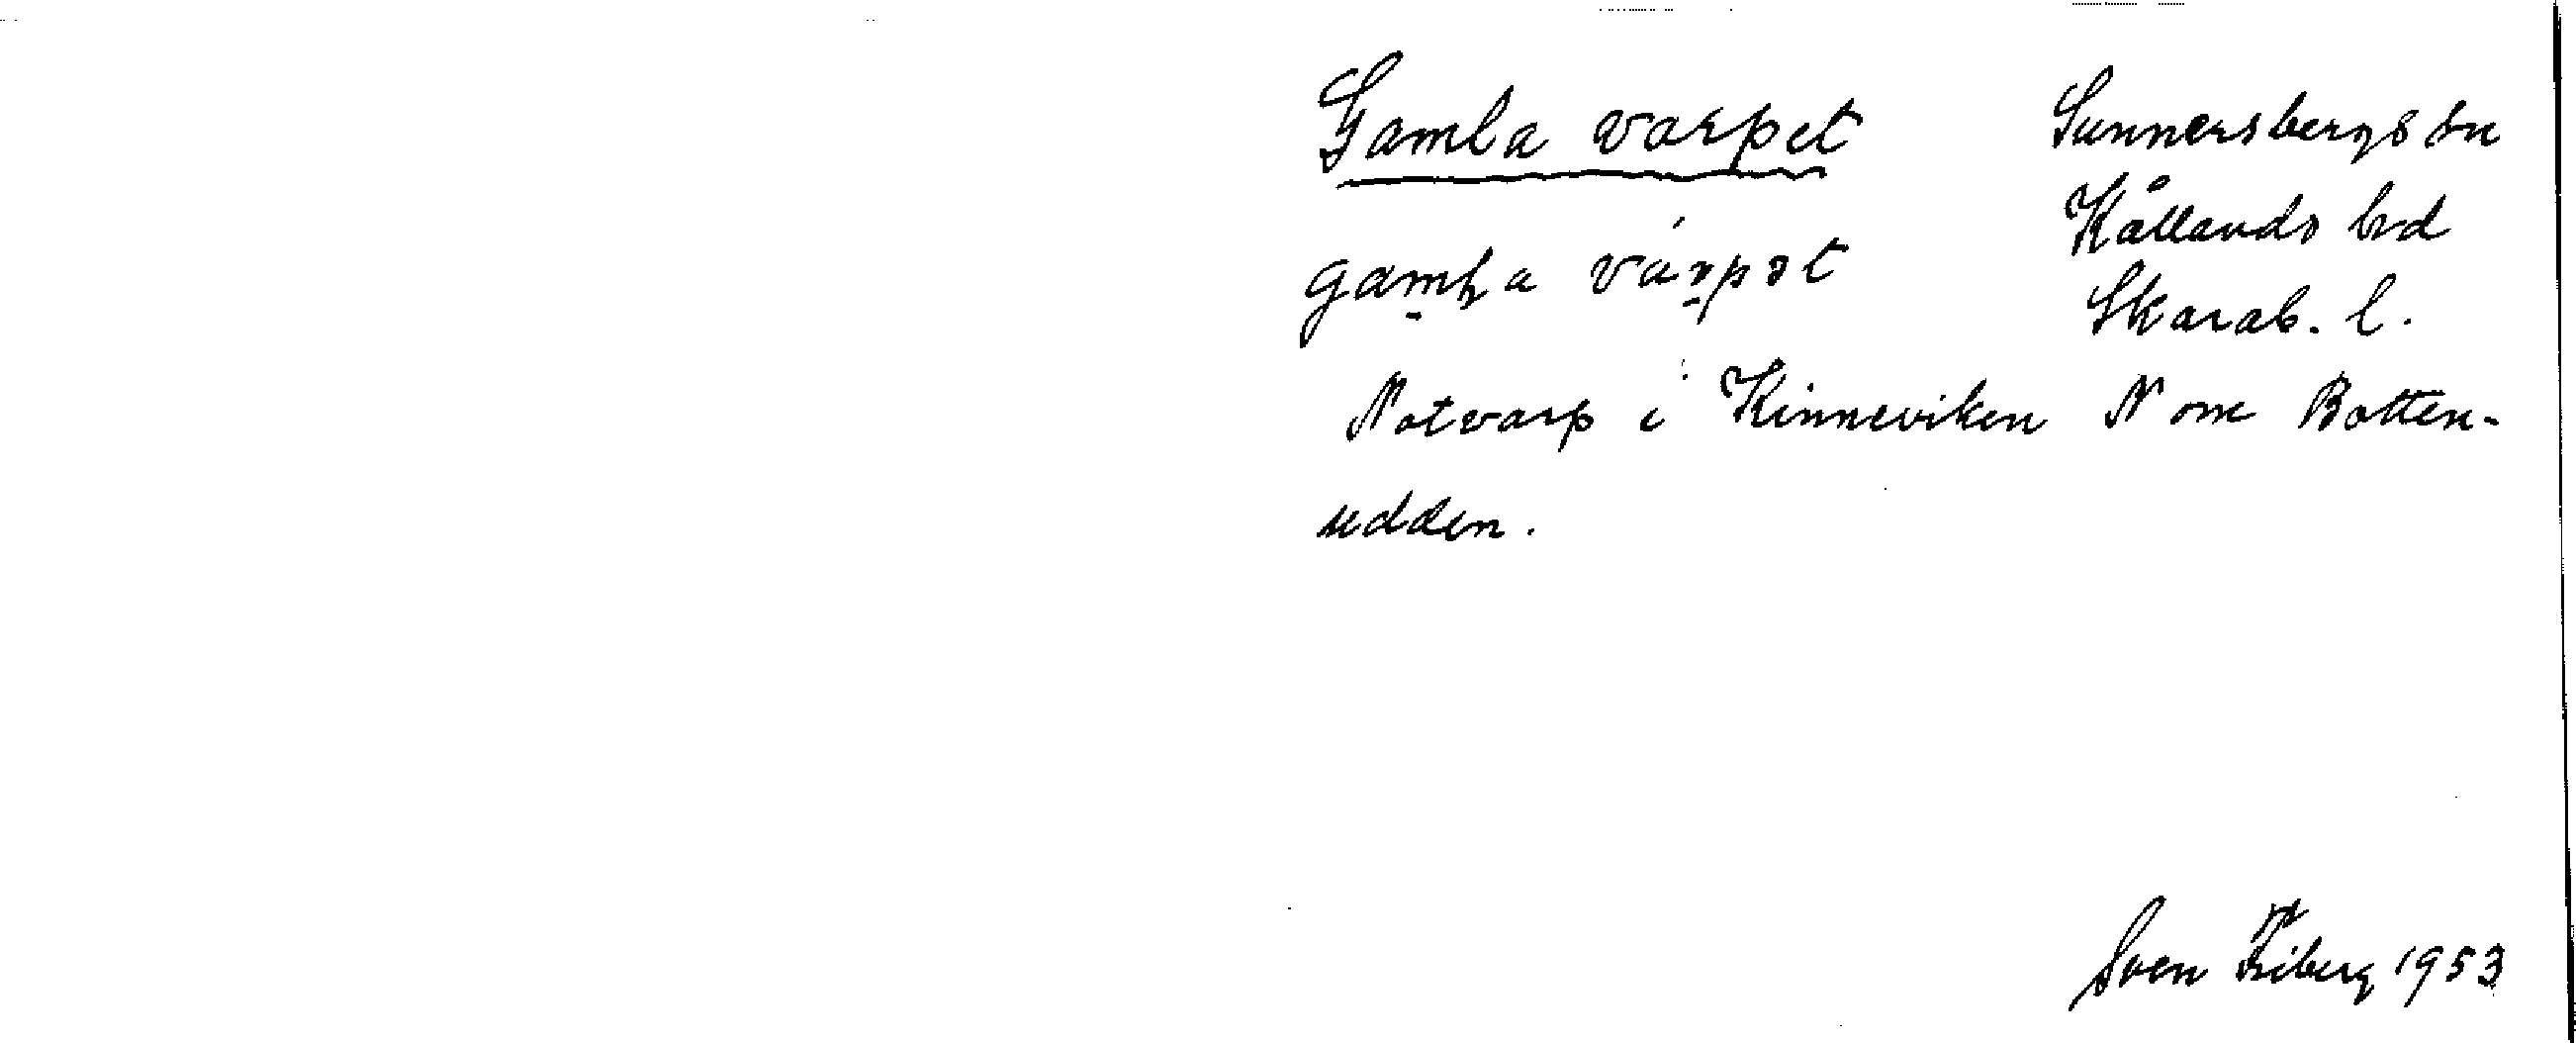 Gamla varpet
Sunnersbergs sn
Kållands hd
gamɬa várpət
Skarab. l.
Notvarp i Kinneviken N om Botten-
udden.
Sven Friberg 1953